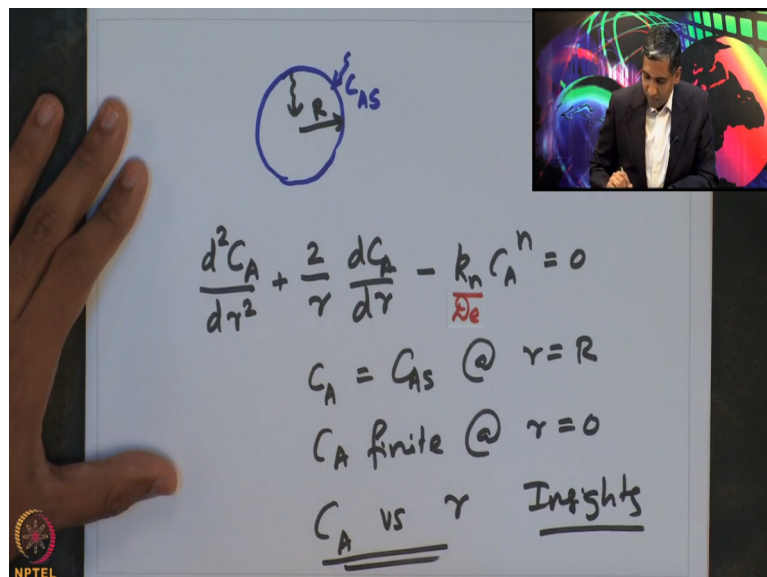 C_AS
R
d²C_A/dr² + 2/r dC_A/dr - k_n/De C_A^n = 0
C_A = C_AS @ r = R
C_A finite @ r = 0
C_A vs r Insights
NPTEL